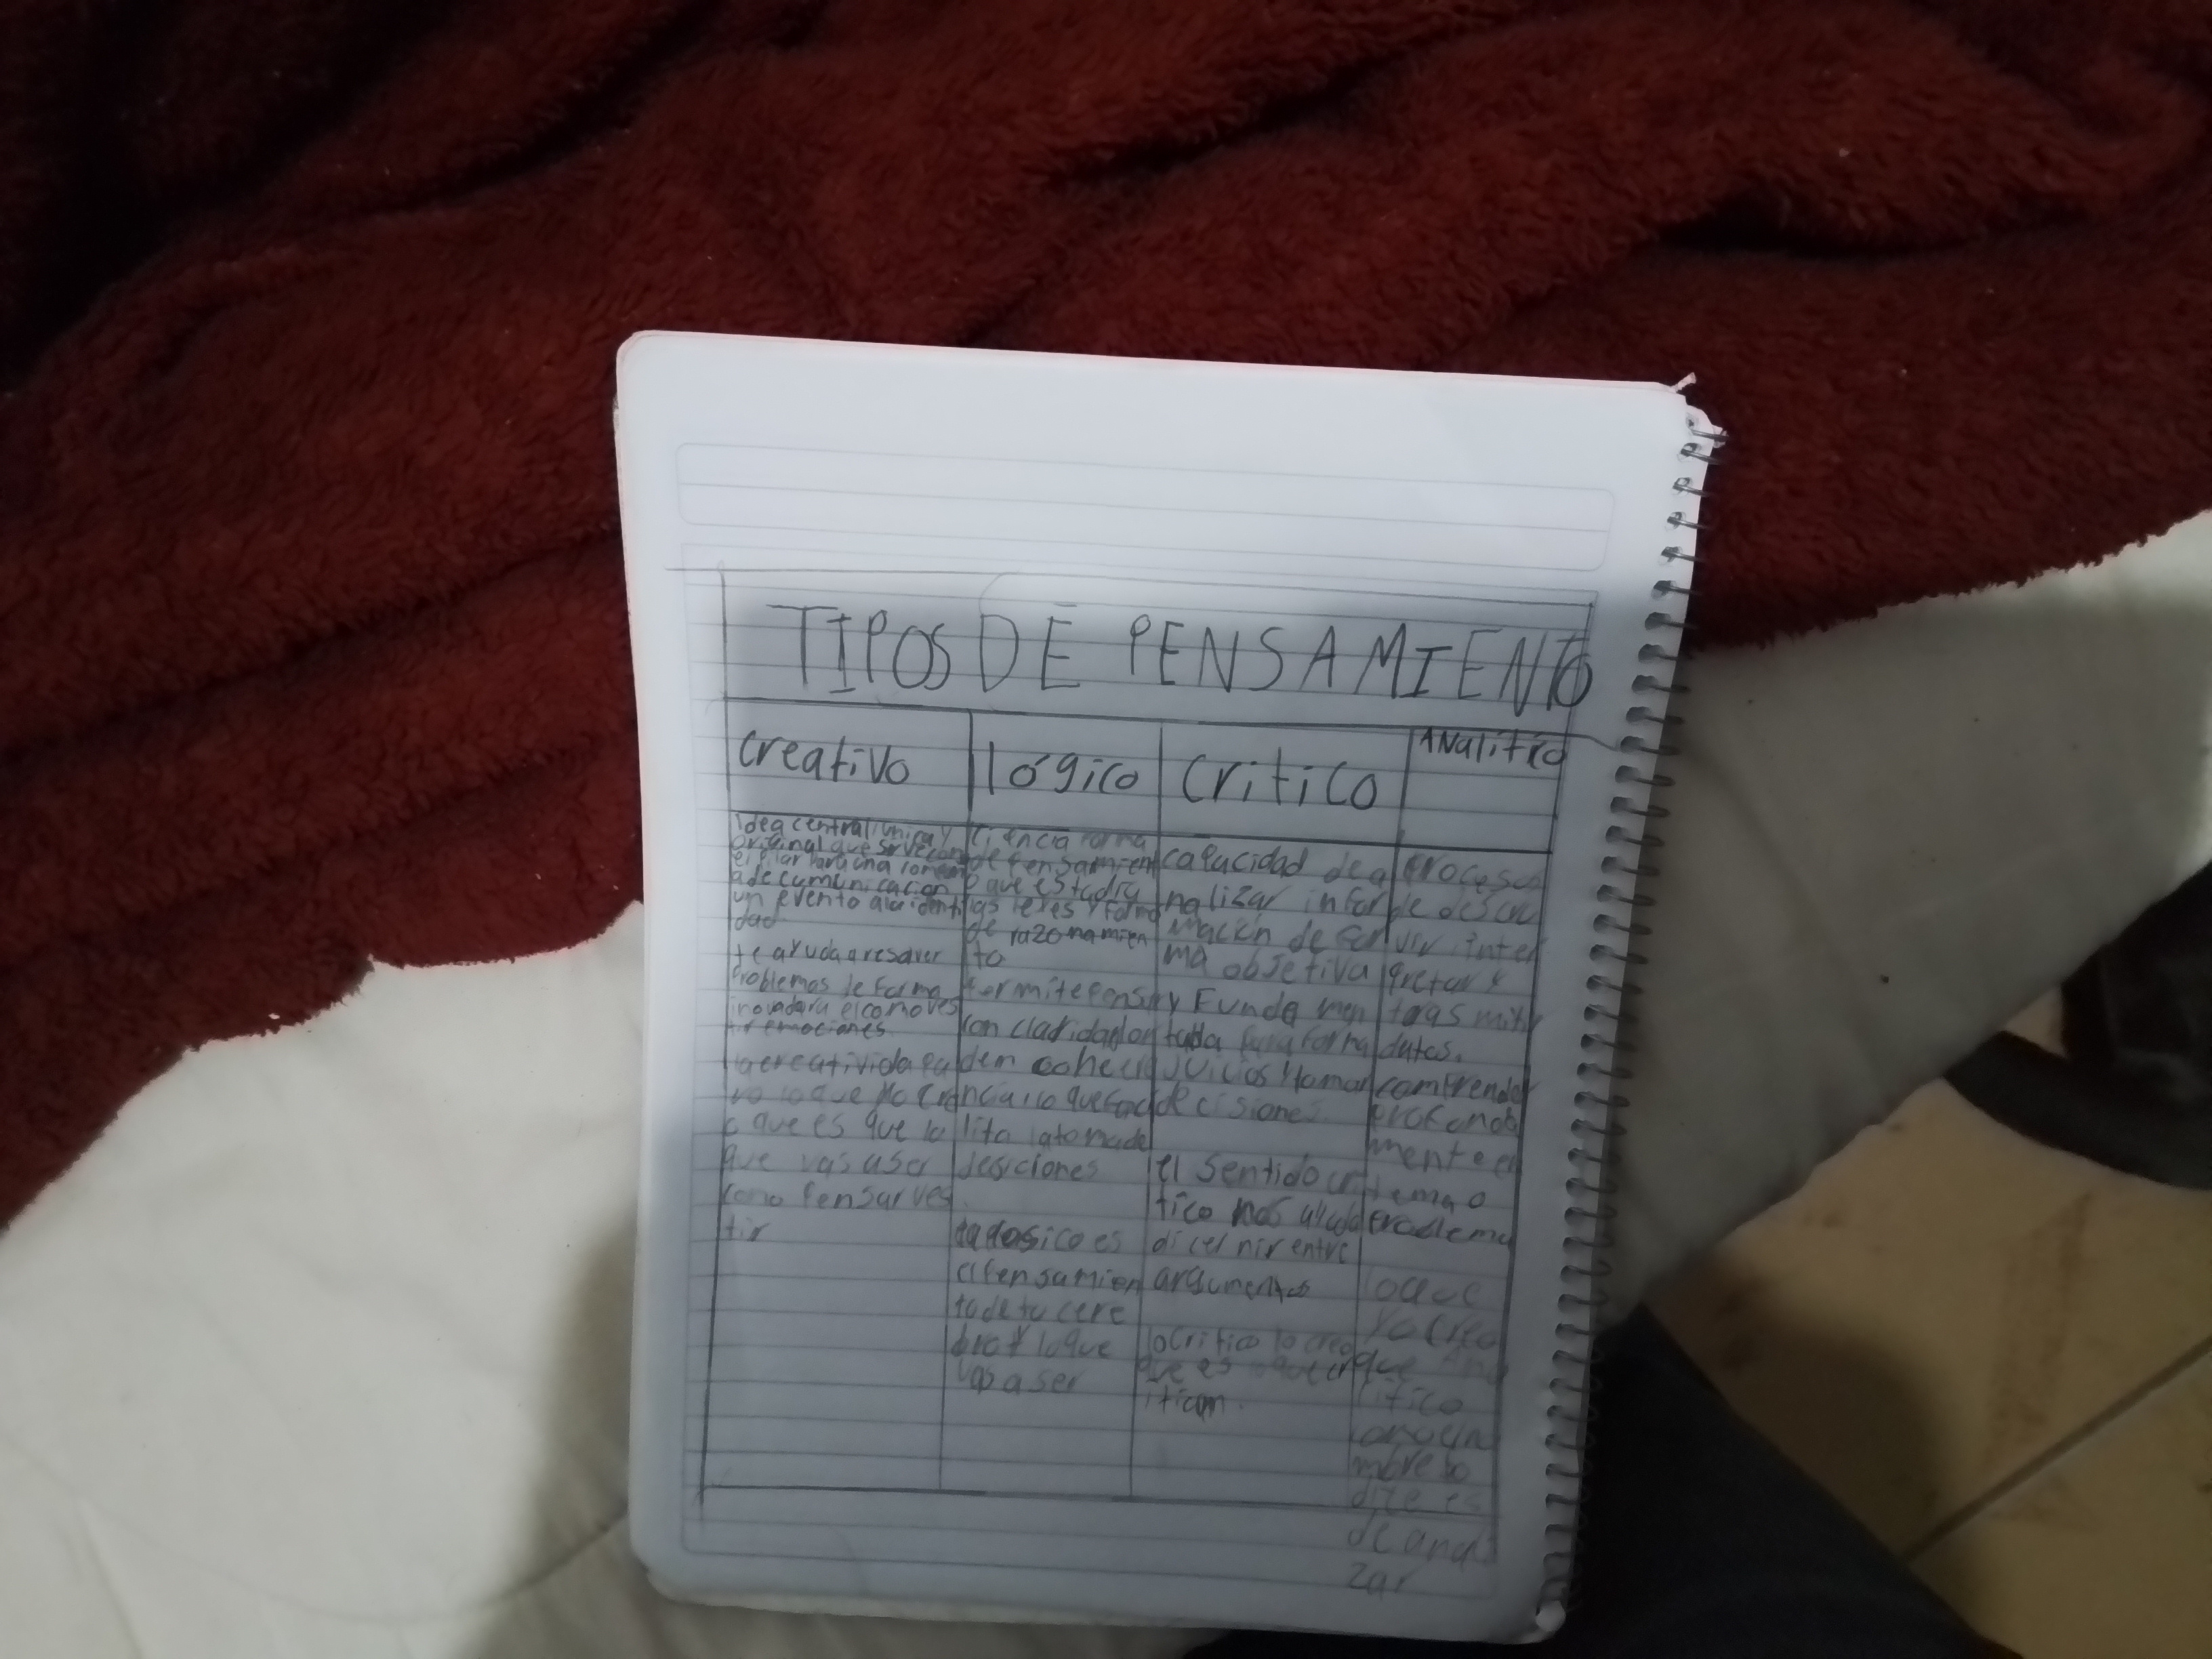 TIPOS DE PENSAMIENTO
creativo
idea central unica y
original que sirve com
el pilar para una
a de comunicacion
un evento a la identi
dad.
te ayuda a resolver
Problemas de forma
inovadora el comoves
tir emociones.
la creatividad pa
ra lo que yo cre
o que es que lo
que vas a ser
como pensar ves
tir
lógico
ciencia forma
de Pensamient
o que estudia
las leyes y forma
de razonamien
to
Permite pensar
con claridad or
den cohere
ncia, lo que faci
lita la toma de
desiciones
el pensamien
to de tu cere
bro y lo que
vas a ser
critico
capacidad de a
nalizar infor
mación de for
ma objetiva
y Funda men
tada para forma
juicios y tomar
decisiones.
el sentido cri
tico nos ayuda
dicernir entre
argumentos
lo critico lo creo
que es lo que cr
itican.
ANalitico
Proceso
de descri
vir, inter
pretar y
tras mitir
datos.
comprender
profunda
mente el
tema o
Problema
lo que
yo creo
que Ana
litico
como su
nombre lo
dice es
de anali
zar